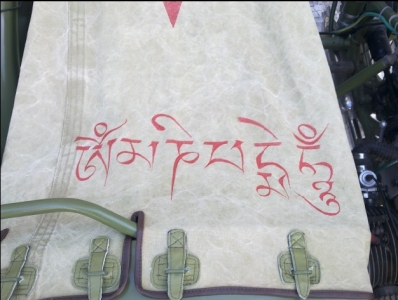 ༀམཎིཔདྨེཧཱུྂ